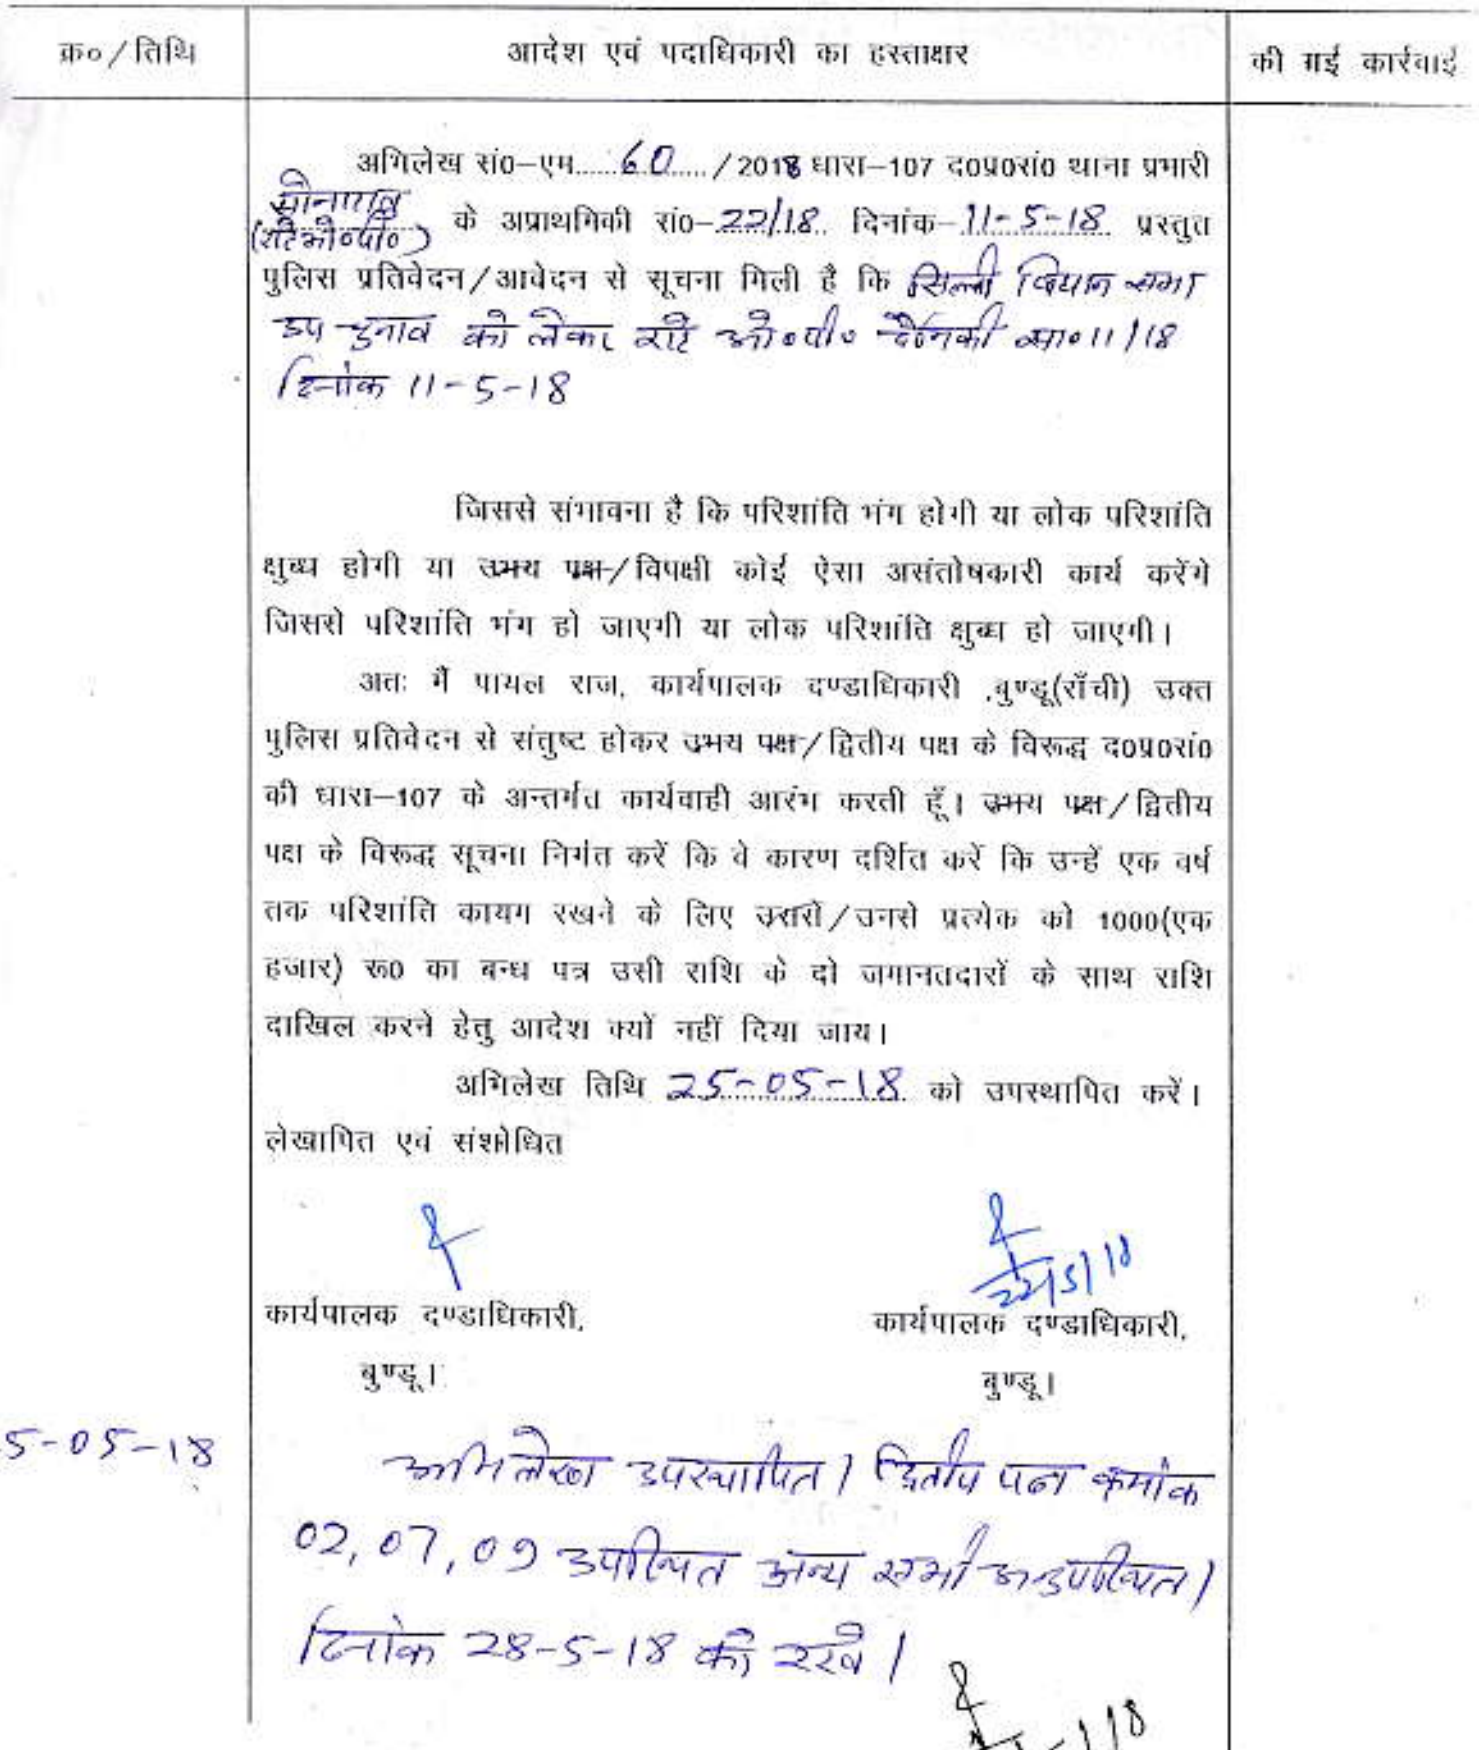 क्र०/तिथि आदेश एवं पदाधिकारी का हस्ताक्षर की गई कार्रवाई
अभिलेख सं0-एम......60...../2018 धारा-107 द०प्र०सं० थाना प्रभारी
सोनाहातु
(राहे ओ०पी०) के अप्राथमिकी सं0-22/18. दिनांक-11-5-18 प्रस्तुत
पुलिस प्रतिवेदन/आवेदन से सूचना मिली है कि सिल्ली विधान सभा
उप चुनाव को लेकर राहे ओ०पी० दैनिकी सा० 11/18
दिनांक 11-5-18
जिससे संभावना है कि परिशांति भंग होगी या लोक परिशांति
क्षुब्ध होगी या उभय पक्ष/विपक्षी कोई ऐसा असंतोषकारी कार्य करेंगे
जिससे परिशांति भंग हो जाएगी या लोक परिशांति क्षुब्ध हो जाएगी।
अतः मैं पायल राज, कार्यपालक दण्डाधिकारी ,बुण्डू(राँची) उक्त
पुलिस प्रतिवेदन से संतुष्ट होकर उभय पक्ष/द्वितीय पक्ष के विरूद्ध द०प्र०सं०
की धारा-107 के अन्तर्गत कार्यवाही आरंभ करती हूँ। उभय पक्ष/द्वितीय
पक्ष के विरूद्ध सूचना निर्गत करें कि वे कारण दर्शित करें कि उन्हें एक वर्ष
तक परिशांति कायम रखने के लिए उससे/उनसे प्रत्येक को 1000(एक
हजार) रू0 का बन्ध पत्र उसी राशि के दो जमानतदारों के साथ राशि
दाखिल करने हेतु आदेश क्यों नहीं दिया जाय।
अभिलेख तिथि 25-05-18 को उपस्थापित करें।
लेखापित एवं संशोधित
22/5/18
कार्यपालक दण्डाधिकारी, कार्यपालक दण्डाधिकारी,
बुण्डू। बुण्डू।
5-05-18 अभिलेख उपस्थापित। द्वितीय पक्ष क्रमांक
02, 07, 09 उपस्थित अन्य सभी अनुपस्थित।
दिनांक 28-5-18 को रखें।